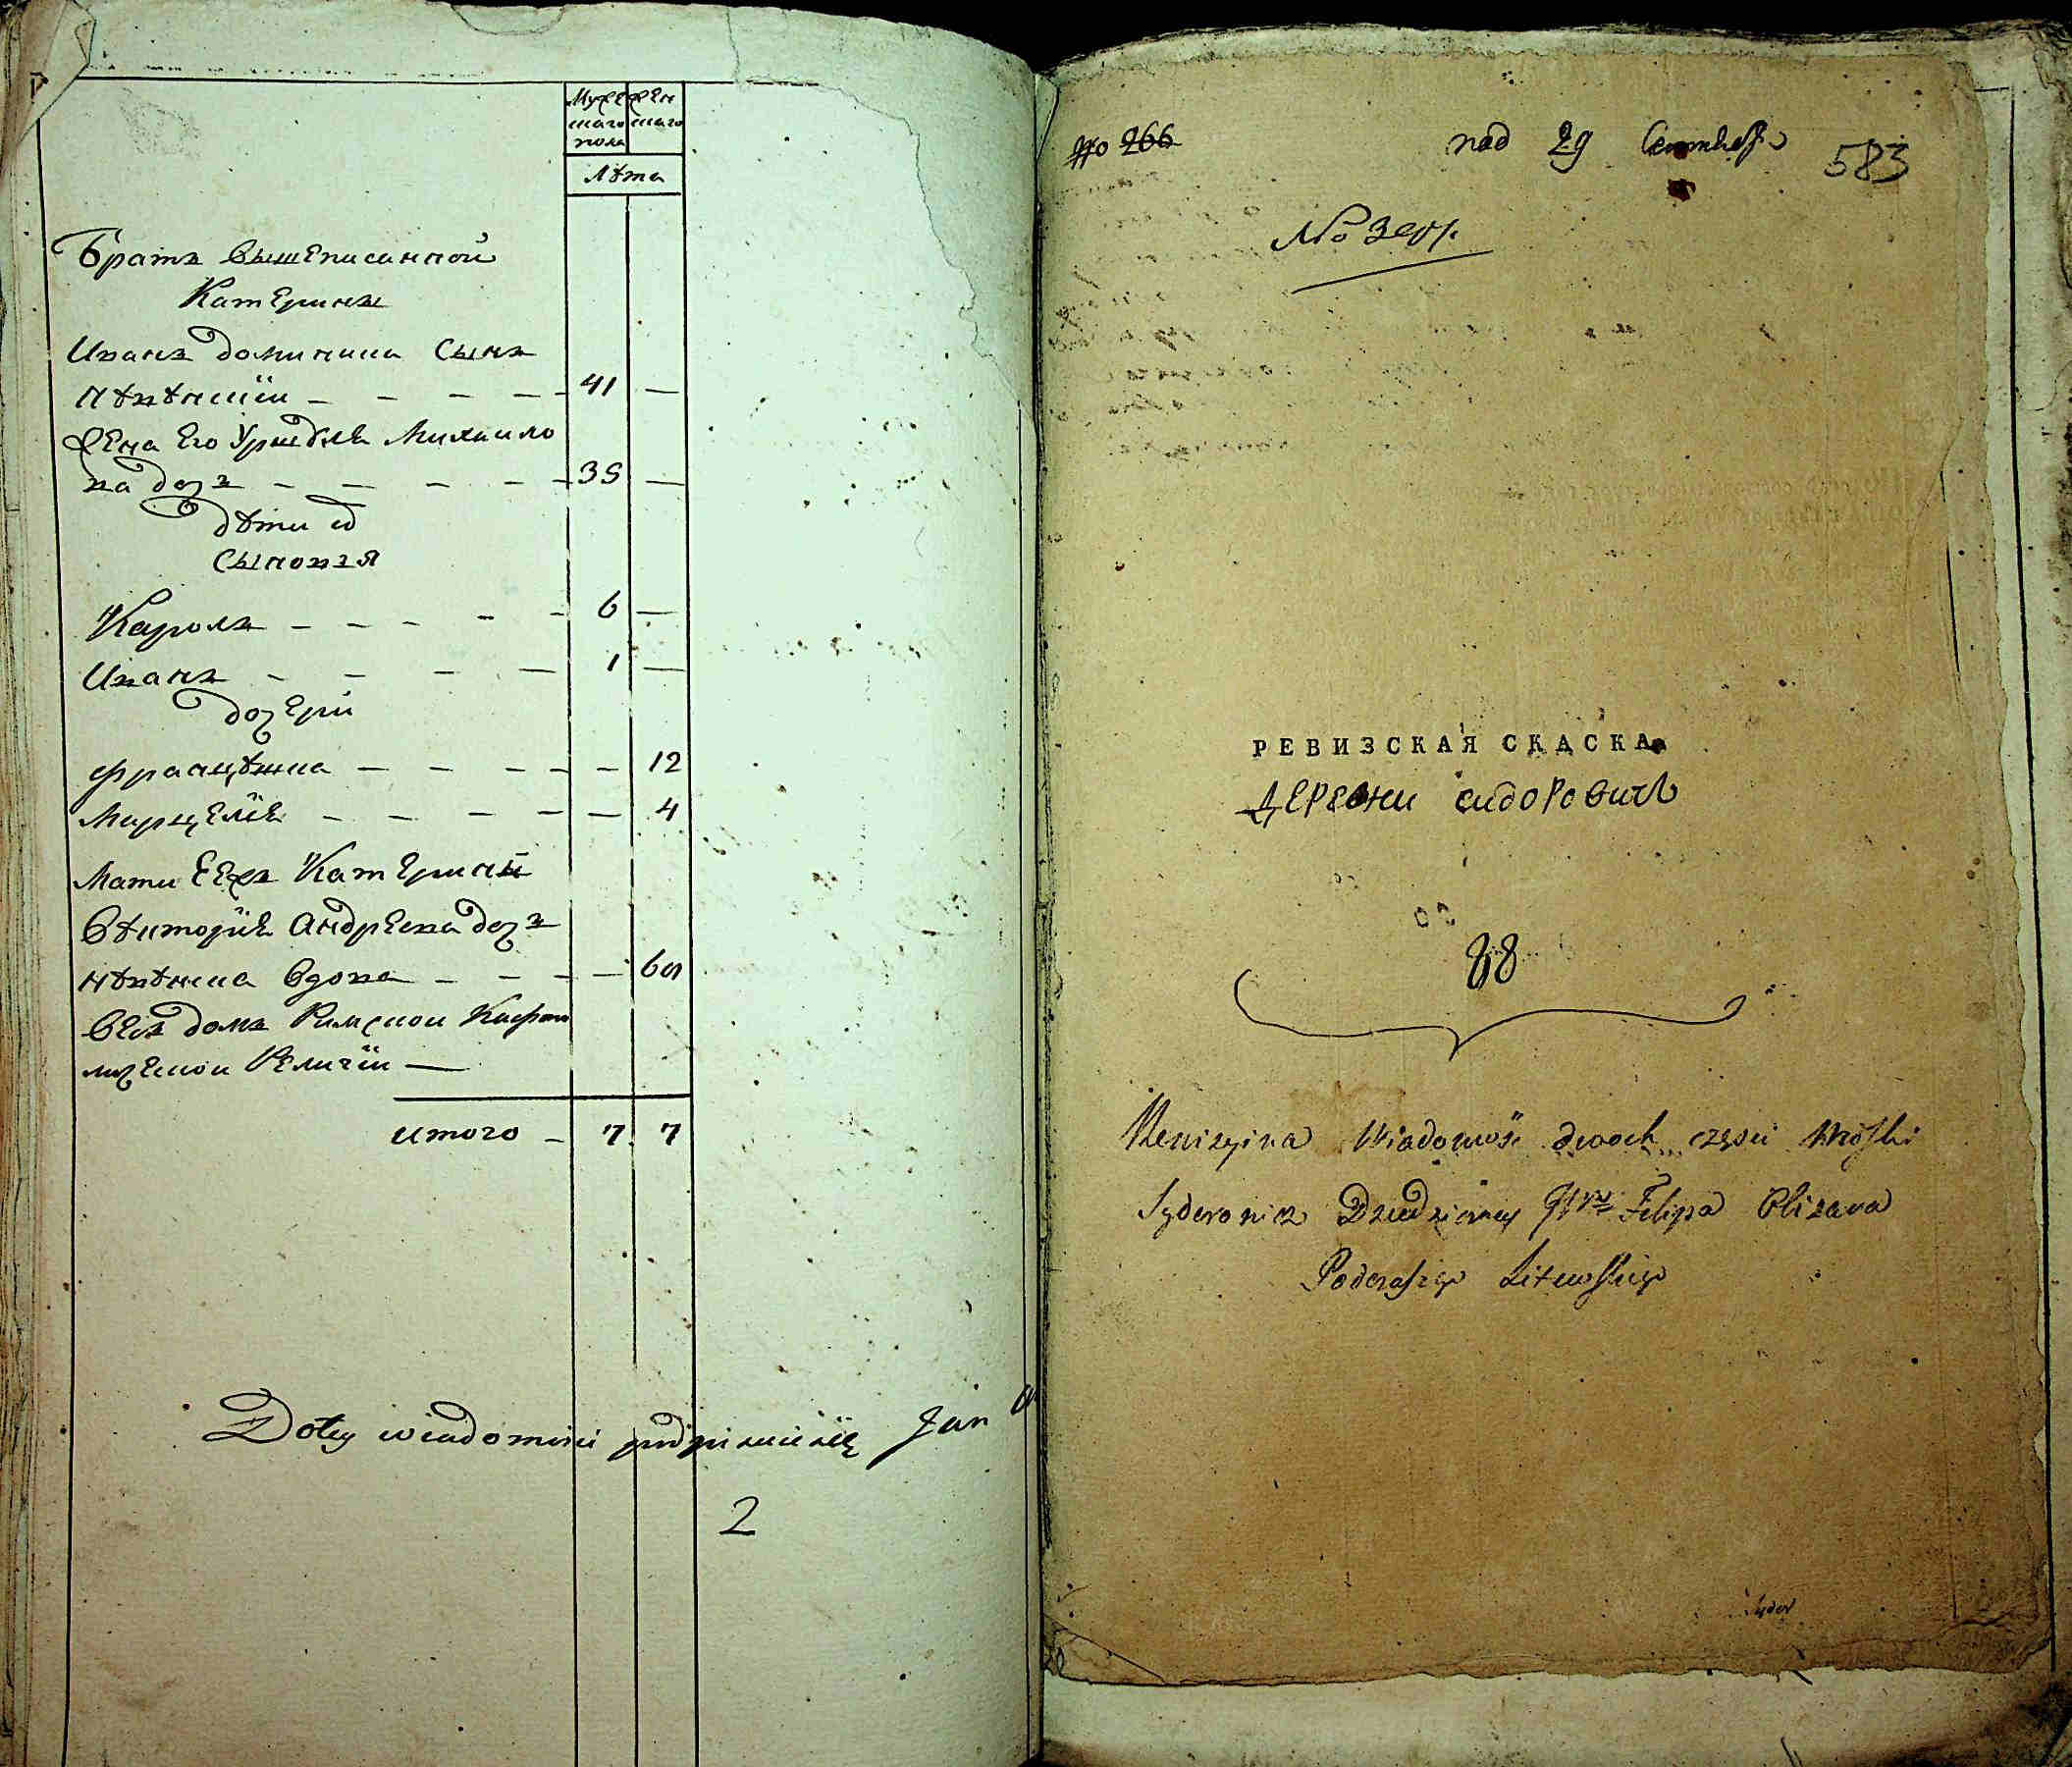 Мужескаго пола
Женскаго
Лѣта
Братъ вышеписанной
Катерины
Иванъ доминика Сынъ
— 41 —
Жена Его Уршуля Михаило
ва дочь — 35 —
дѣти
Сыновья
Кароль — 6 —
Иванъ — 1 —
дочери
Францѣшка — — 12
Марцеля — — 4
Мати Еежъ Катерины
Викторія Андреева дочь
вдова — —
весь домъ Римской Кафто
лической Религіи —
итого — 7 7
Dotey wiadomości podpisuie się Jan
2
No 266 pod 29 583
No
РЕВИЗСКАЯ СКАСКА
деревни сидоровичъ
88
Rewizyina Wiadomość dwoch części Wioski
Syderowicz Dziedziczney Filipa Olizara
Podczaszego Litewskiego